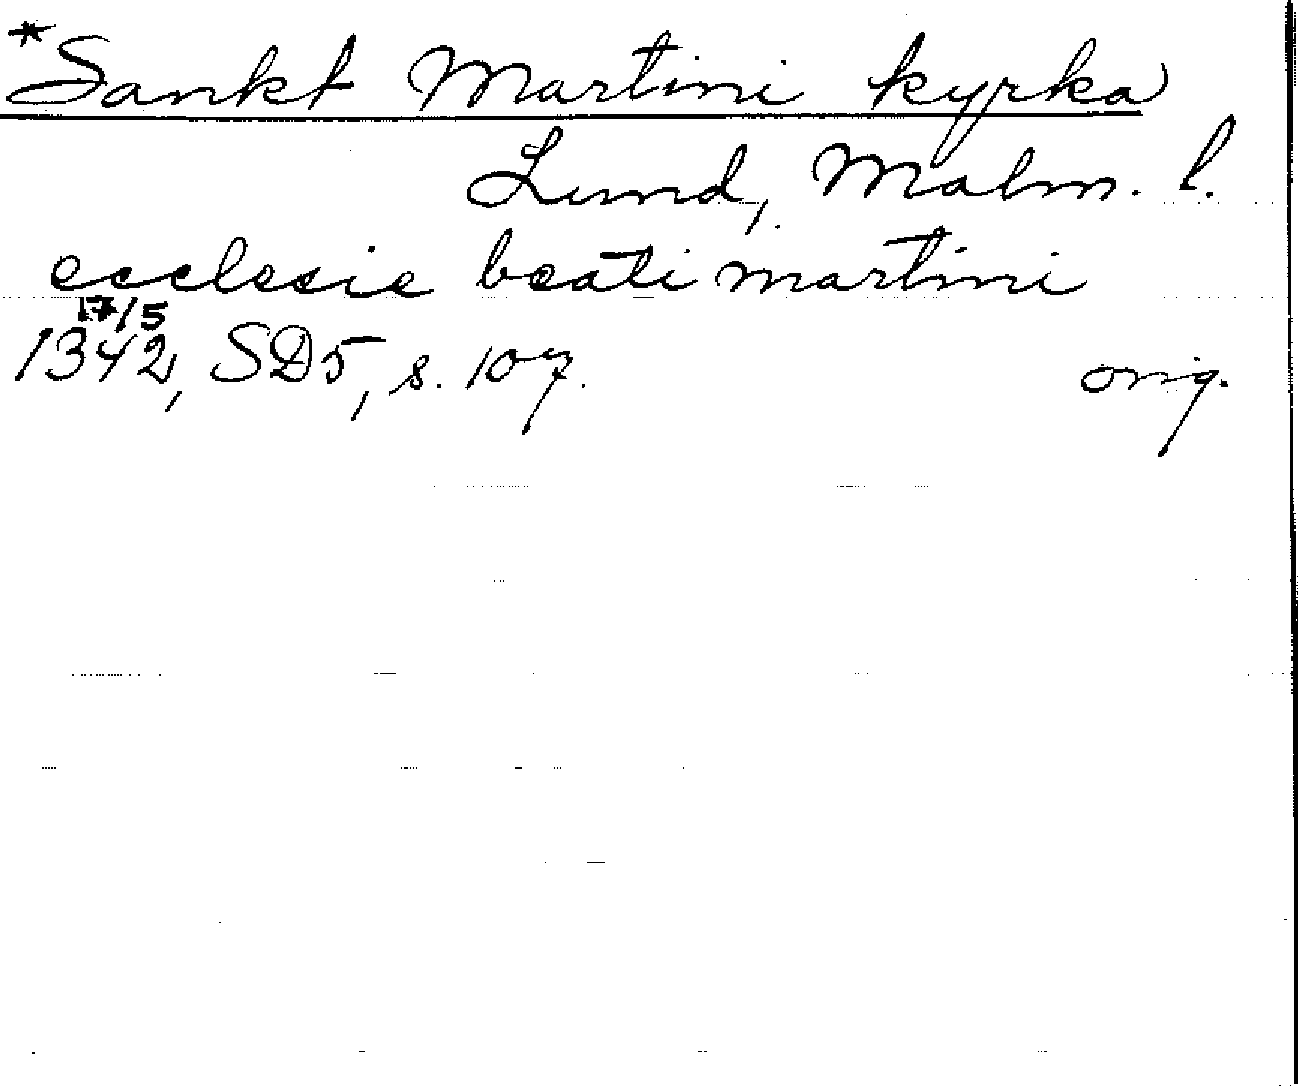 *Sankt Martini kyrka
Lund, Malm. l.
ecclesie beati martini
17/5
1342, SD5, s. 107. orig.